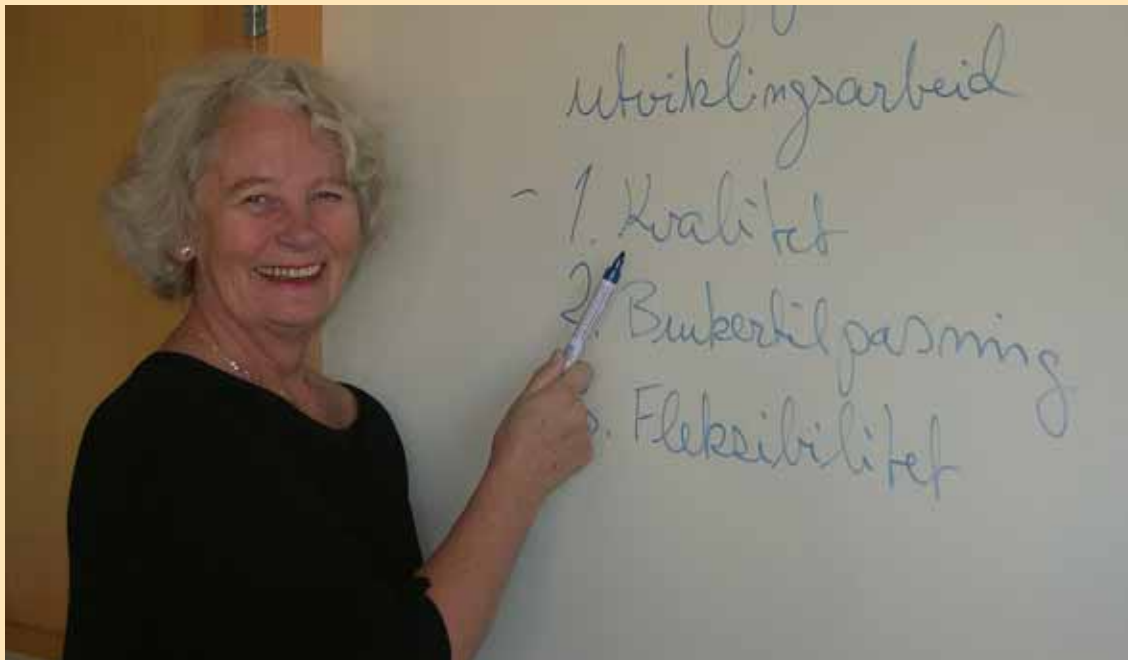 utviklingsarbeid
- 1. Kvalitet
2. Brukertilpasning
3. Fleksibilitet